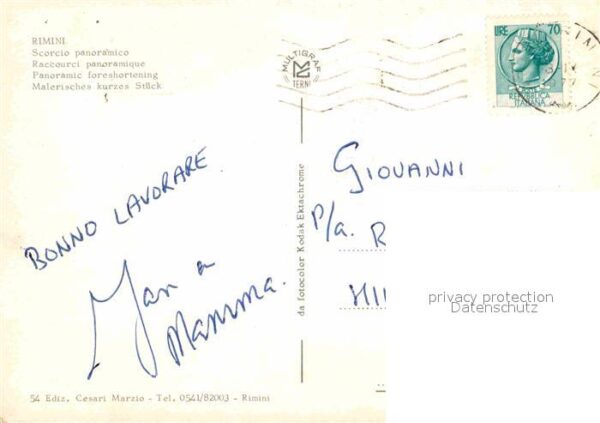 RIMINI
Scorcio panoramico
Raccourci panoramique
Panoramic foreshortening
Malerisches kurzes Stück
MULTIGRAF
TERNI
LIRE 70
REPUBBLICA
ITALIANA
BONNO LAVORARE
Mamma.
da fotocolor Kodak Ektachrome
GIOVANNI
P/a. R
privacy protection
Datenschutz
54 Ediz. Cesari Marzio - Tel. 0541/82003 - Rimini